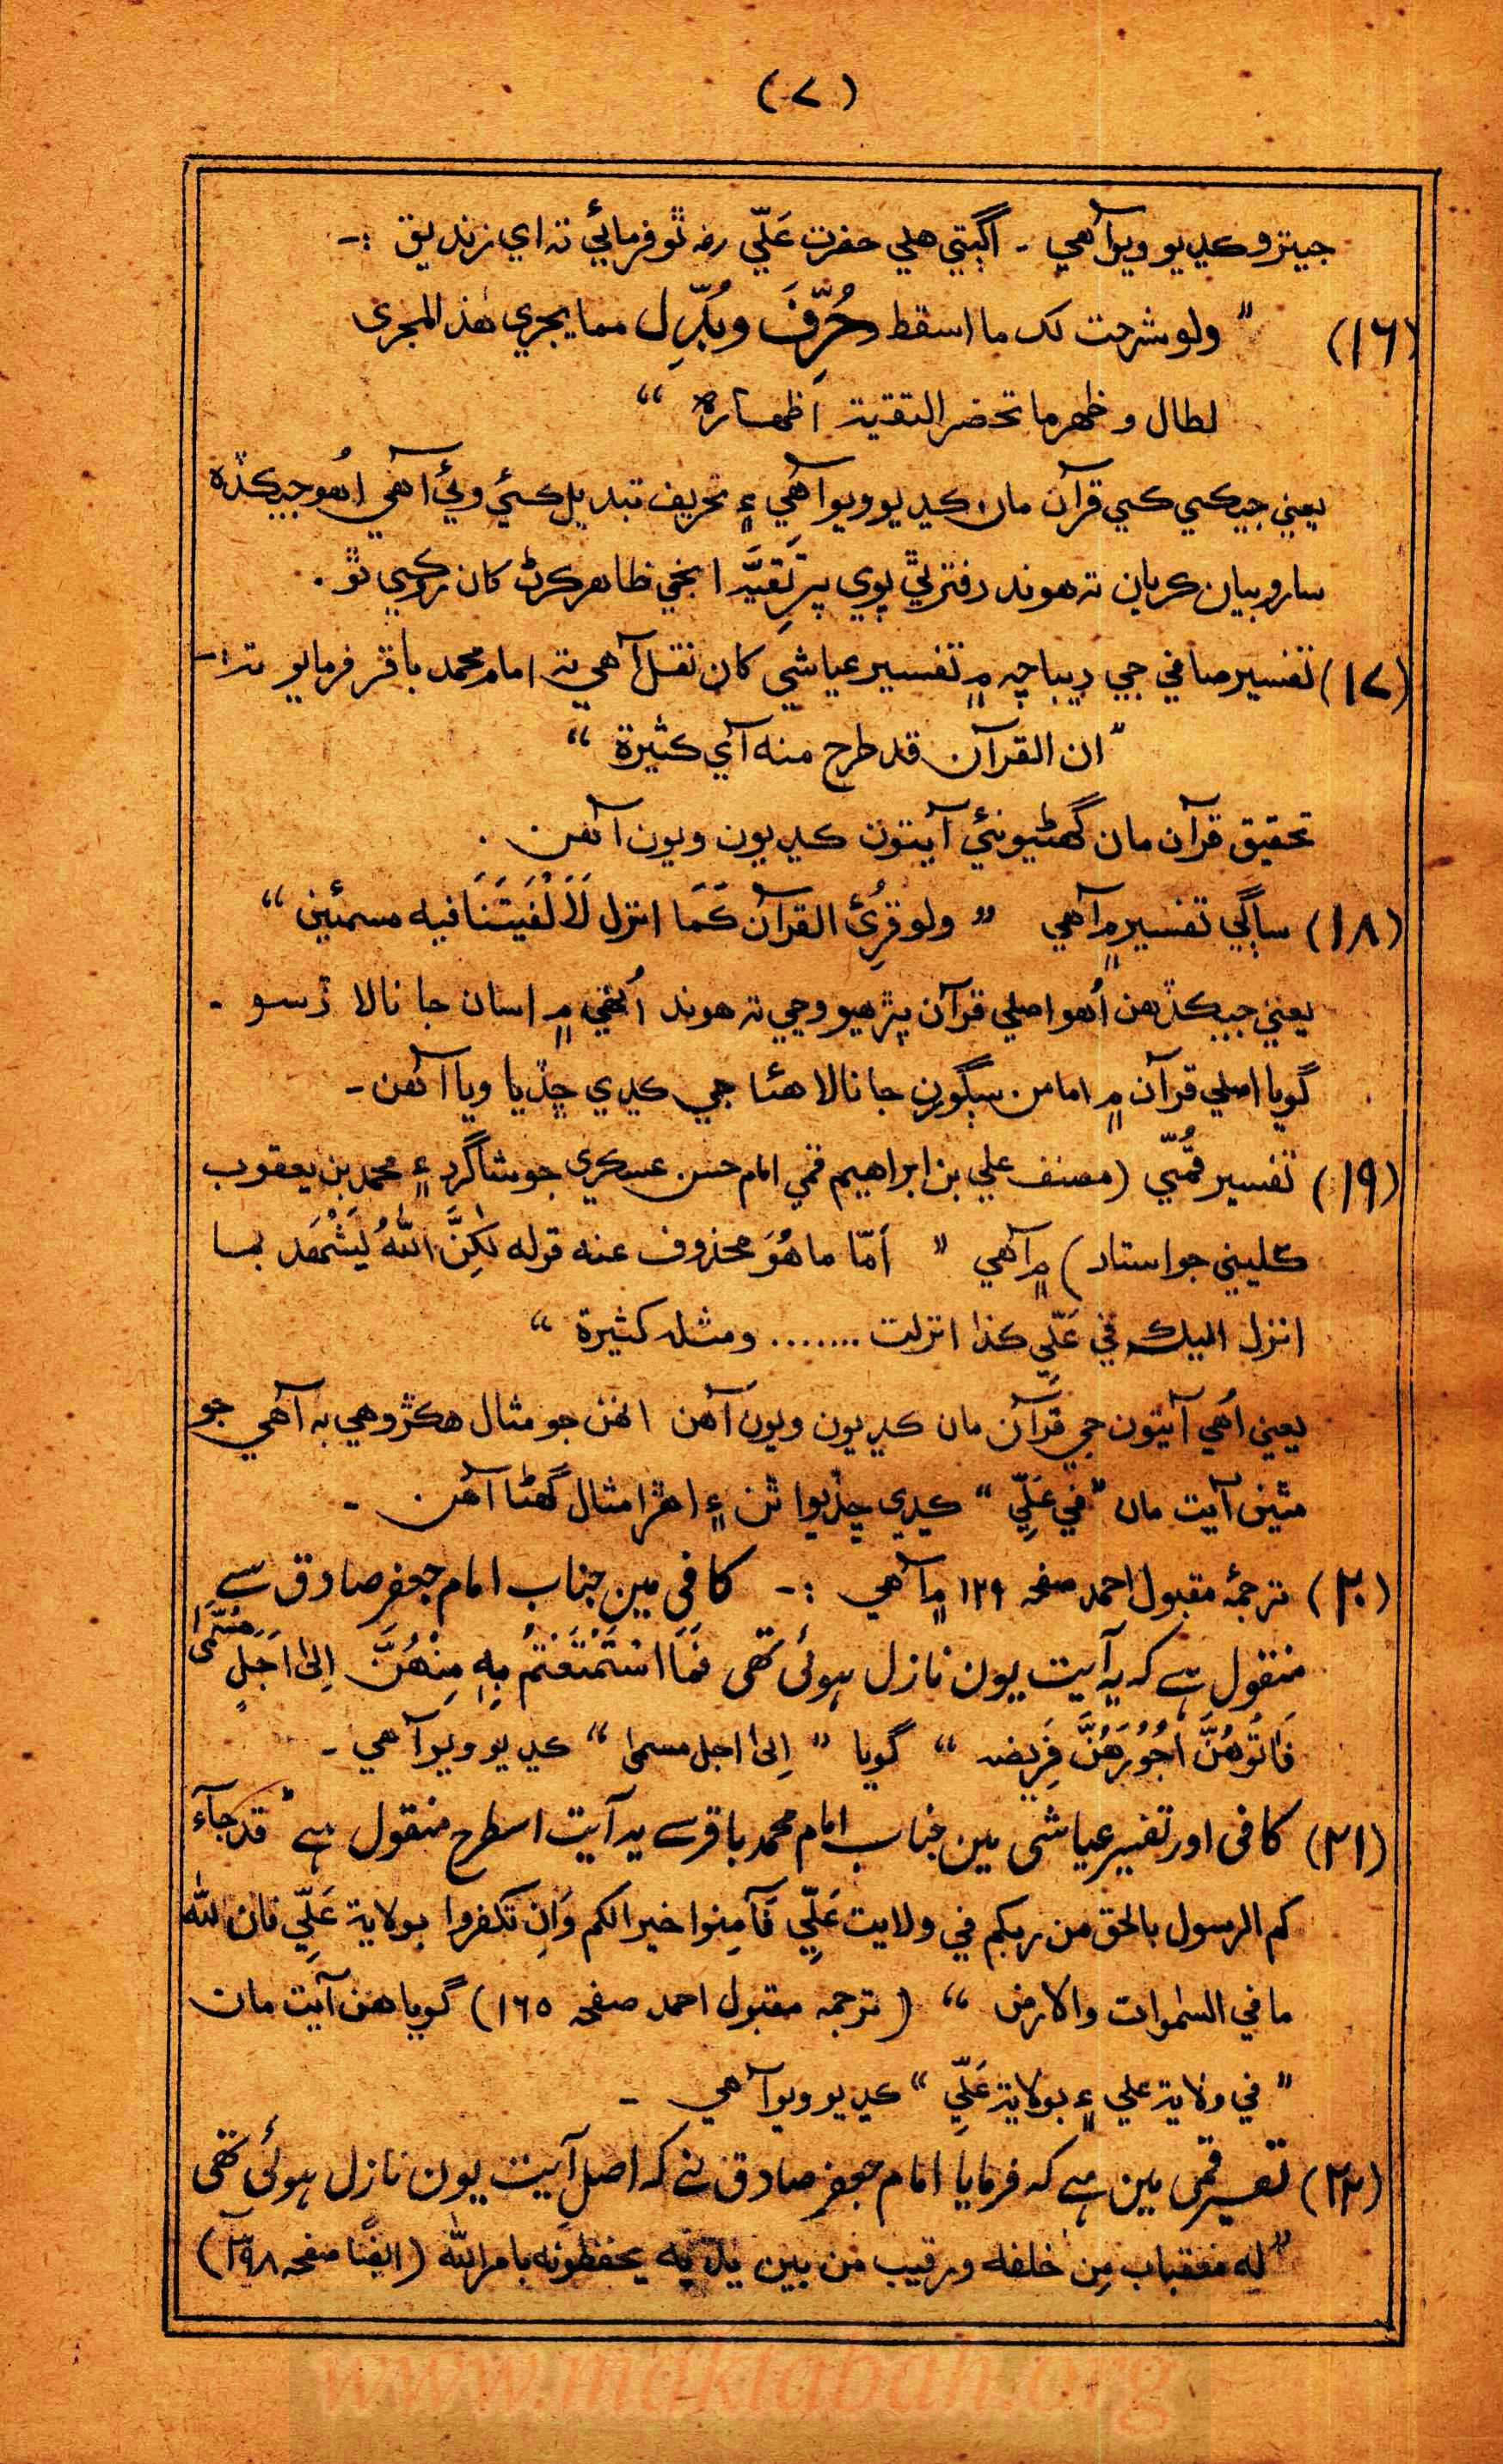 (٧)
جيترو ڪڍيو ويو آهي ۔ اڳتي هلي حضرت عَلّي رضہ ٿو فرمائي تہ اي زنديق :۔
(١٦) " ولو شرحت لک ما اسقط و حُرِّفَ و بُدِّلِ مما يجري هٰذ المجرى
لطال و ظهر ما تحضر التقية اظهاره "
يعني جيڪي ڪي قرآن مان ڪڍيو ويو آهي ۽ تحريف تبديل ڪئي وئي آهي اُهو جيڪڏه
سارو بيان ڪريان تہ هوند دفتر ٿي پوي پر تَقِيَّه انجي ظاهر ڪرڻ کان روڪي ٿو .
(١٧) تفسير صافي جي ديباچہ ۾ تفسير عياشي کان نقل آهي تہ امام محمد باقر فرمايو تہ :۔
" ان القرآن قد طرح منه آي كثيرة "
تحقيق قرآن مان گهڻيونئي آيتون ڪڍيون ويون آهن .
(١٨) ساڳي تفسير ۾ آهي " ولو قرِئ القرآن كَمَا انزل لَاَلْفَيتَنَا فيه مسمئين "
يعني جيڪڏهن اُهو اصلي قرآن پڙهيو وڃي تہ هوند اُنهي ۾ اسان جا نالا ڏسو ۔
گويا اصلي قرآن ۾ امامن سڳورن جا نالا هئا جي ڪڍي ڇڏيا ويا آهن ۔
(١٩) تفسير قُمّي (مصنف علي بن ابراهيم قمي امام حسن عسكري جو شاگرد ۽ محمد بن يعقوب
ڪليني جو استاد) ۾ آهي " اَمّا ما هُوَ محذوف عنه قوله لٰكِنَّ اللهُ يَشْهَد بما
انزل اليك في عَلّيٍ كذا انزلت ....... و مثله كثيرة "
يعني اُهي آيتون جي قرآن مان ڪڍيون ويون آهن انهن جو مثال هڪڙو هي بہ آهي جو
مٿين آيت مان " في عَلِيّ " ڪڍي ڇڏيو اٿن ۽ اهڙا مثال گهڻا آهن ۔
(٢٠) ترجمۂ مقبول احمد صفحہ ١٢٩ ۾ آهي :۔ کافی مین جناب امام جعفر صادق سے
منقول ہے کہ یہ آیت یون نازل ہوئی تھی فَمَا اسْتَمْتَعْتُمْ بِهٖ مِنْهُنَّ اِلىٰ اَجَلٍ مُسَمًّى
فَاتُوهُنَّ اُجُوْرَهُنَّ فَرِيضہ " گويا " اِلىٰ اجل مسمىٰ " ڪڍيو ويو آهي ۔
(٢١) کافی اور تفسیر عیاشی مین جناب امام محمد باقر سے یہ آیت اسطرح منقول ہے " قد جآء
كم الرسول بالحق من ربكم في ولايت عَلِيّ فَآمِنوا خيرا لكم وَاِن تكفروا بولاية عَلِيّ فان لله
ما في السمٰوات والارض " (ترجمہ مقبول احمد صفحہ ١٦٥) گويا هن آيت مان
" في ولاية علي ۽ بولاية عَلِيّ " ڪڍيو ويو آهي ۔
(٢٢) تفسیر قمی مین ہے کہ فرمایا امام جعفر صادق نے کہ اصل آیت یون نازل ہوئی تھی
" له معقبات مِن خلفه و رقيب من بين يديه يحفظونه بامر الله (ايضًا صفحہ
www.maktabah.org